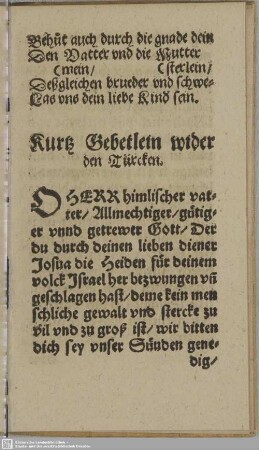 Behüt auch durch die gnade dein
Den Vatter vnd die Mutter
(mein/ (sterlein/
Deßgleichen brueder vnd schwe-
Las vns dein liebe Kind sein.
Kurtz Gebetlein wider
den Türcken.
O HERR himlischer vat-
ter/ Allmechtiger/ gütig-
er vnnd getrewer Gott/ Der
du durch deinen lieben diener
Josua die Heiden für deinem
volck Israel her bezwungen vñ
geschlagen hast/ deme kein men
schliche gewalt vnd stercke zu
vil vnd zu groß ist/ wir bitten
dich sey vnser Sünden gene
dig/